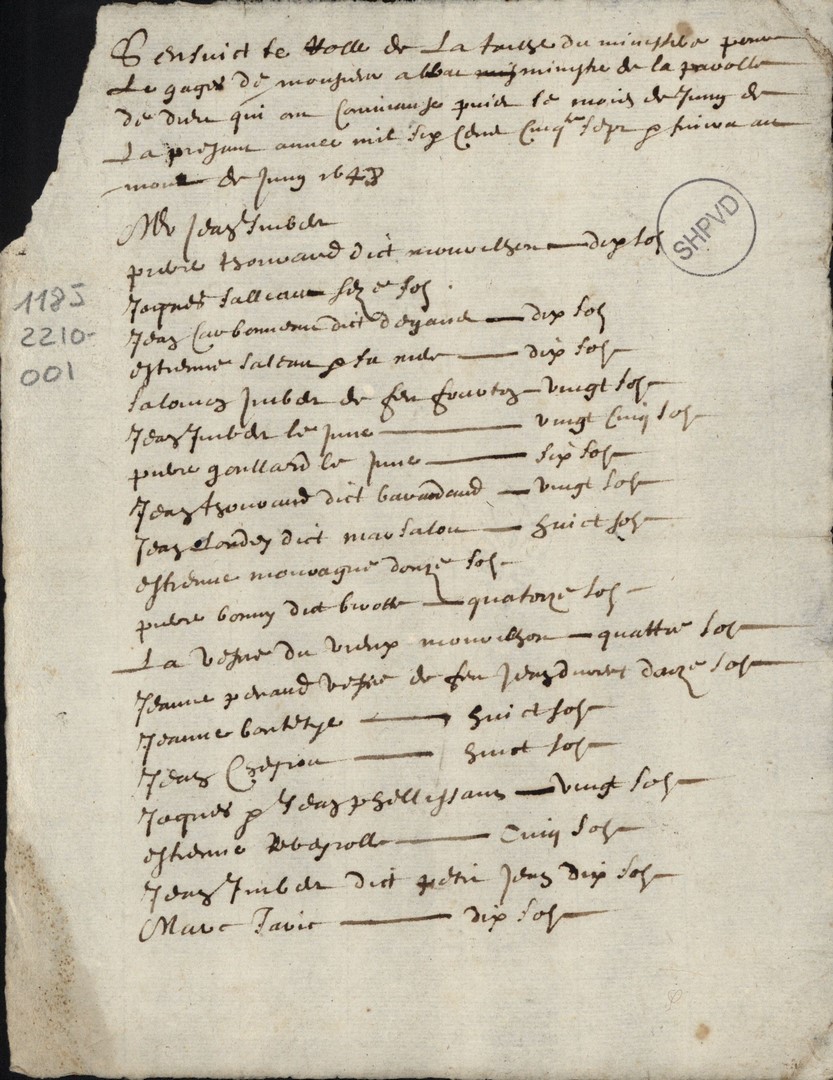 Sensuict le Rolle de La taille du ministere pour
Le gages de monsieur abbat ministre de la parolle
de dieu qui on Commanse puis le mois de Jung de
La presant annee mil six Cens Cinqte sept
mois de Jung 164
Mr Jean Imbert
pierre thouvand dict monvilhon dix sols
Jaques salleau seze sols
Jean Carbonneau dict dix sols
estienne saleau p sa mere dix sols
salomon Jmbert de feu vingt sols
Jean Jmbert le June vingt Cinq sols
pierre goullard le June six sols
Jean thouvand dict vingt sols
Jean dict mar salou huict sols
estienne monvagne donze sols
pierre bonny dict quatorze sols
La vefve du vieux monvilhon quattre sols
Jeanne penaud vefve de feu Jean donze sols
Jeanne huict sols
Jean huict sols
Jaques p Jean phellissaus vingt sols
estienne Rebeyrolle Cinq sols
Jean Jmbert dict petit Jean dix sols
Marc Tavic dix sols
SHPVD
1185
2210-
001